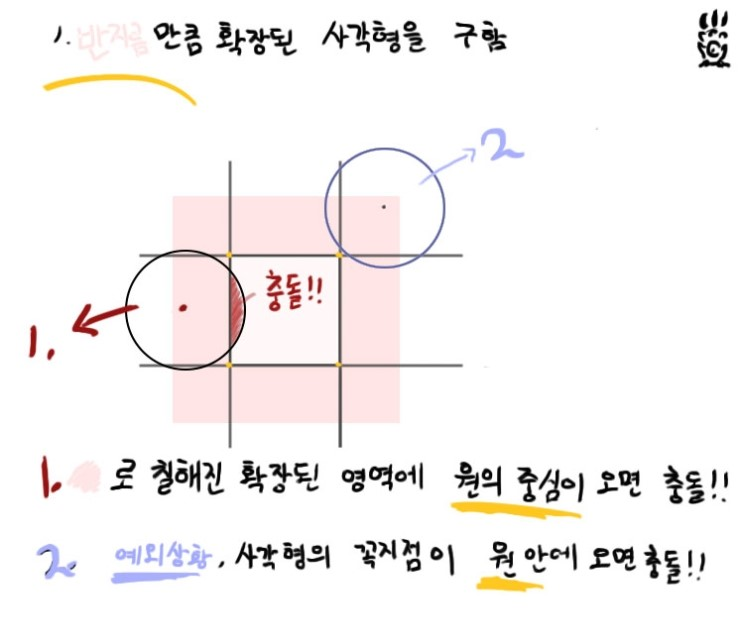 1. 반지름 만큼 확장된 사각형을 구함
2
충돌!!
1.
1. 로 칠해진 확장된 영역에 원의 중심이 오면 충돌!!
2 예외상황, 사각형의 꼭지점이 원 안에 오면 충돌!!